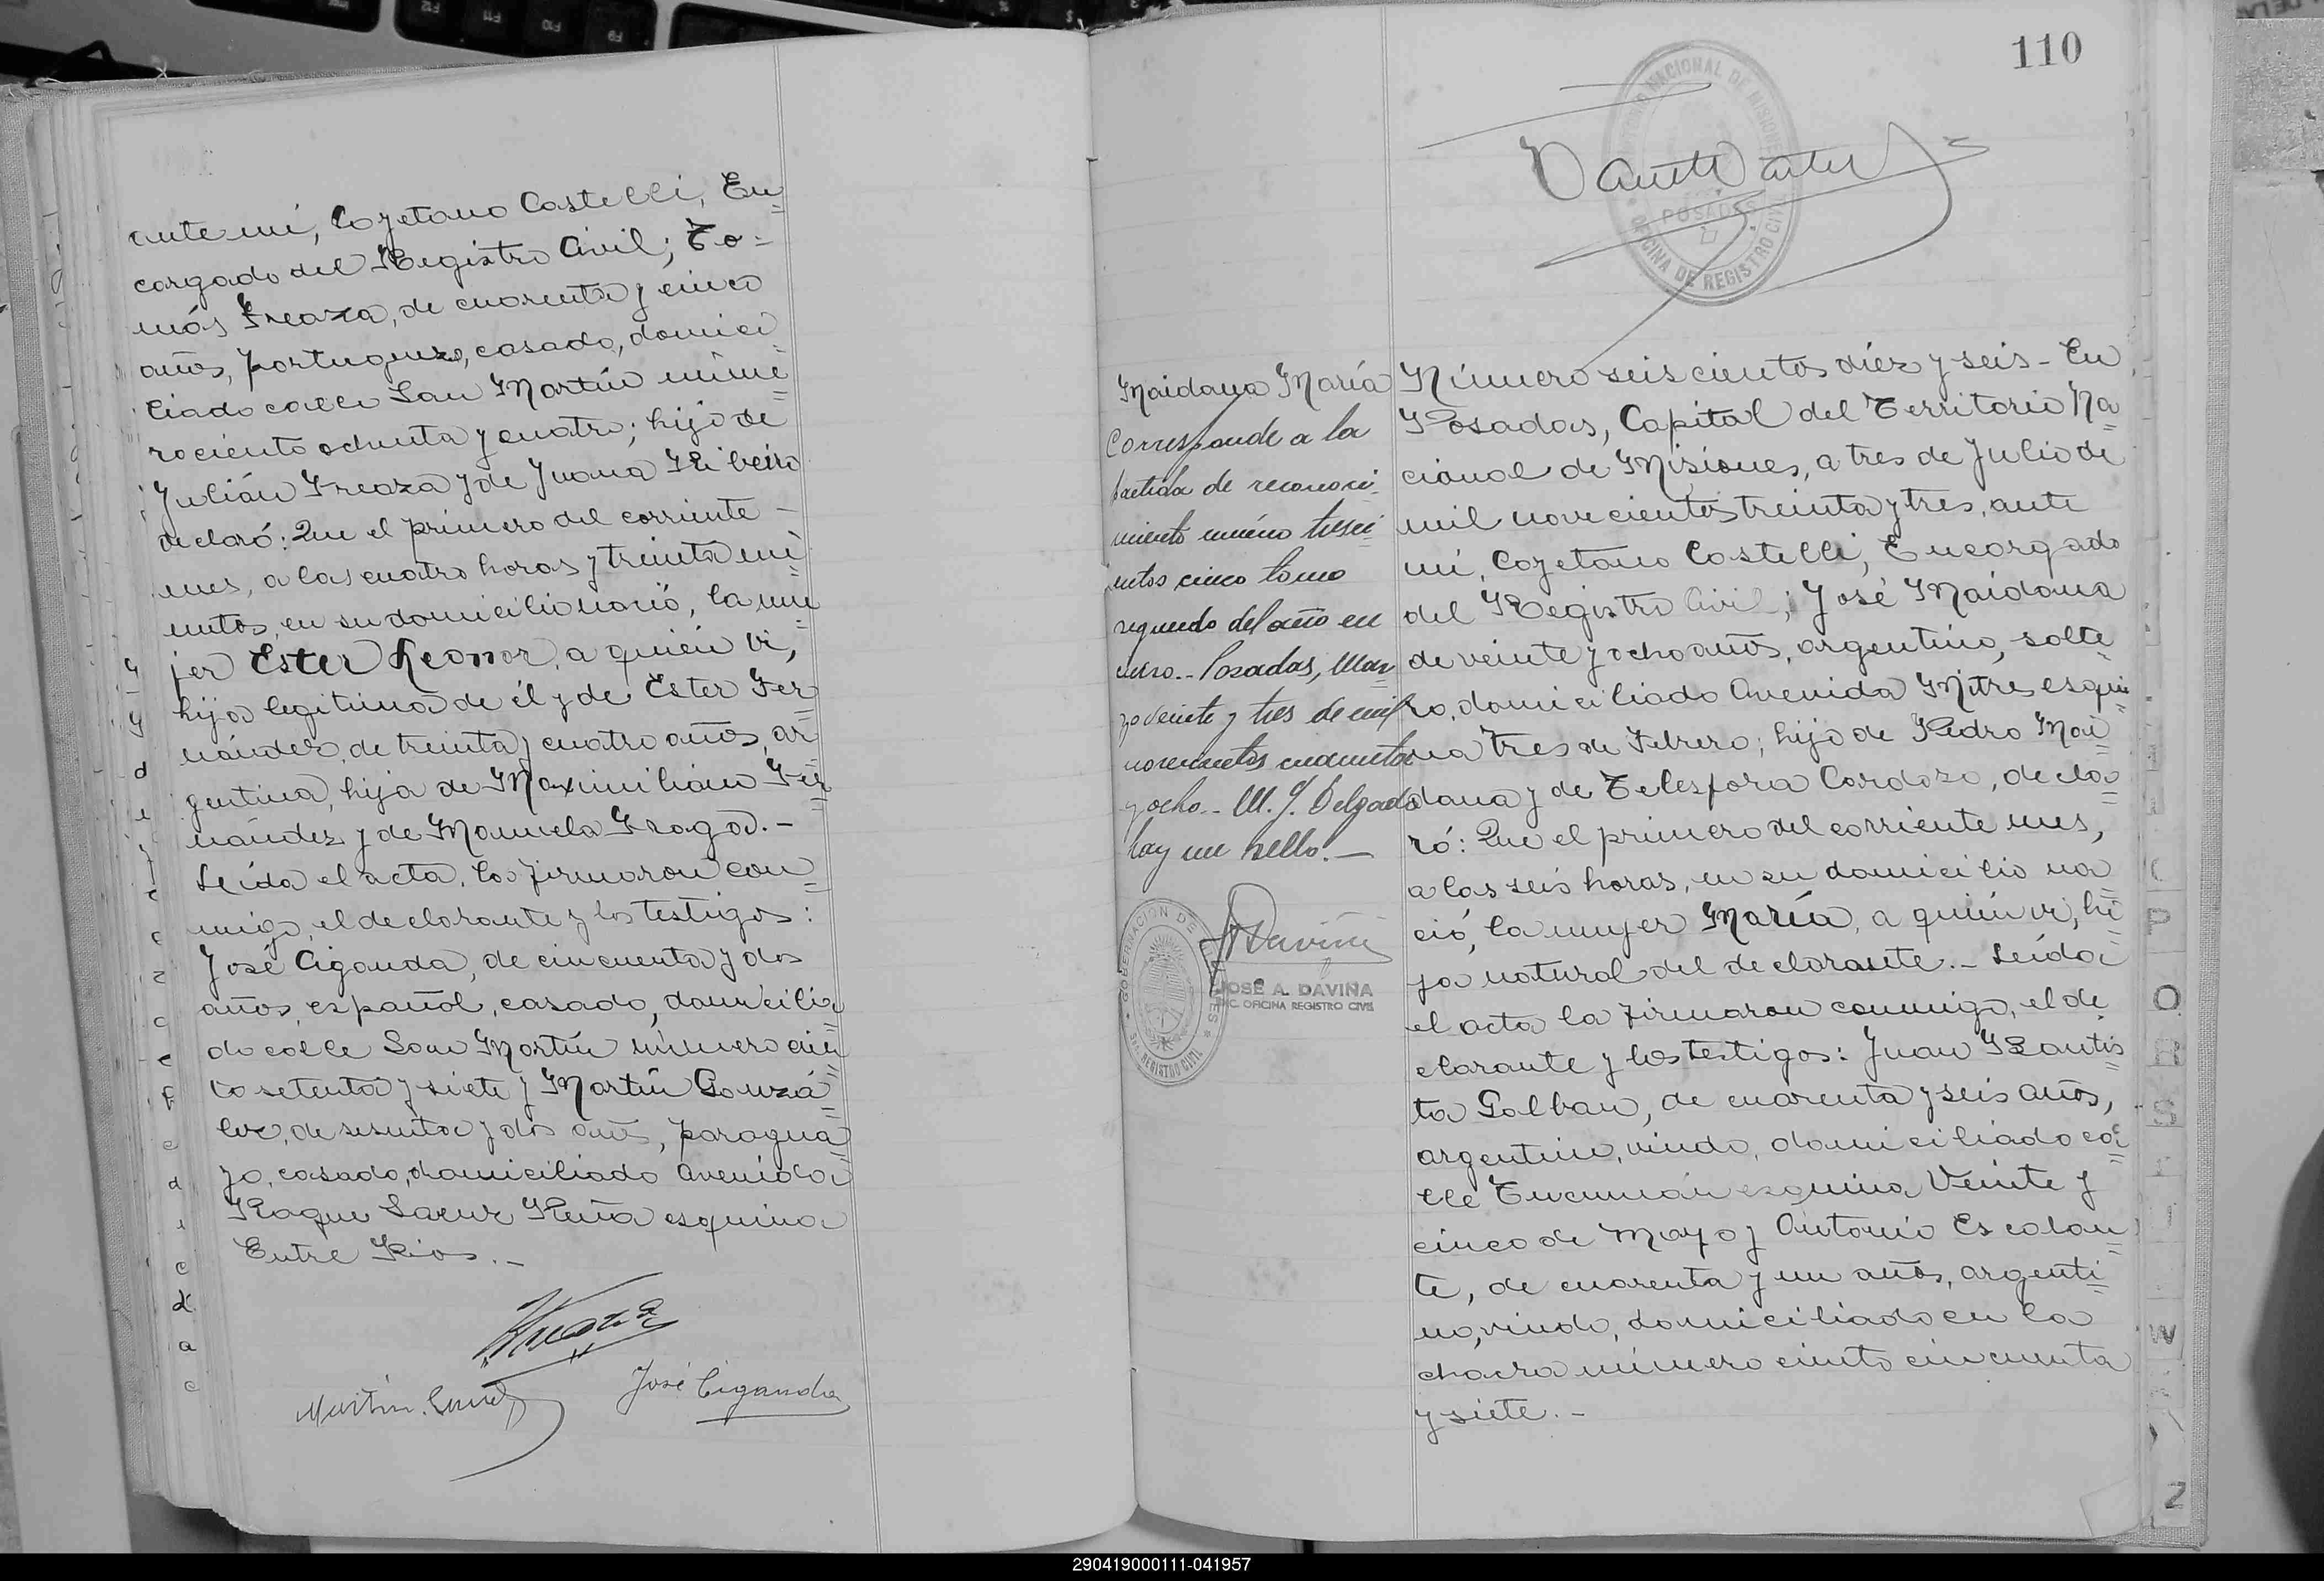 ante mi, Cayetano Castelli, En
cargado del Registro Civil; To-
más Freaza, de cuarenta y cinco
años, portugues, casado, domici
liado calle San Martín núme
ro ciento ochenta y cuatro; hijo de
Julián Freaza y de Juana Ribeiro
declaró: Que el primero del corriente -
mes, a las cuatro horas y treinta mi
nutos, en su domicilio nació, la mu
jer Ester Leonor, a quién vi,
hija legitima de él y de Ester Fer
nández, de treinta y cuatro años, ar
gentina, hija de Maximiliano Fer
nández y de Manuela Fraga.-
Leída el acta, la firmaron con
migo, el declarante y los testigos:
José Ciganda, de cincuenta y dos
años, español, casado, domicilia
do calle San Martín número cien
to setenta y siete y Martín Gonzá
lez, de sesenta y dos años, paragua
yo, casado, domiciliado Avenida
Roque Saenz Peña esquina
Entre Rios.-
José Ciganda
110
POSADAS
OFICINA DE REGISTRO CIVIL
Maidana María
Corresponde a la
partida de reconoci
miento número tresci
entos cinco tomo
segundo del año en
curso.- Posadas, Mar
zo veinte y tres de mil
novecientos cuarenta
y ocho.- M. J. Delgado
hay un sello.-
JOSÉ A. DAVIÑA
ENC. OFICINA REGISTRO CIVIL
Número seiscientos diez y seis - En
Posadas, Capital del Territorio Na
cional de Misiones, a tres de Julio de
mil novecientos treinta y tres, ante
mi, Cayetano Castelli, Encargado
del Registro Civil; José Maidana
de veinte y ocho años, argentino, solte
ro, domiciliado Avenida Mitre esqui
na Tres de Febrero; hijo de Pedro Mai
dana y de Telesfora Cardozo, decla
ró: Que el primero del corriente mes,
a las seis horas, en su domicilio na
ció, la mujer María, a quién vi, hi
ja natural del declarante.- Leída
el acta la firmaron conmigo, el de
clarante y los testigos: Juan Bautis
ta Galban, de cuarenta y seis años,
argentino, viudo, domiciliado ca
lle Tucumán esquina Veinte y
cinco de Mayo y Antonio Escalan
te, de cuarenta y un años, argenti
no, viudo, domiciliado en la
chacra número ciento cincuenta
y siete.-
290419000111-041957